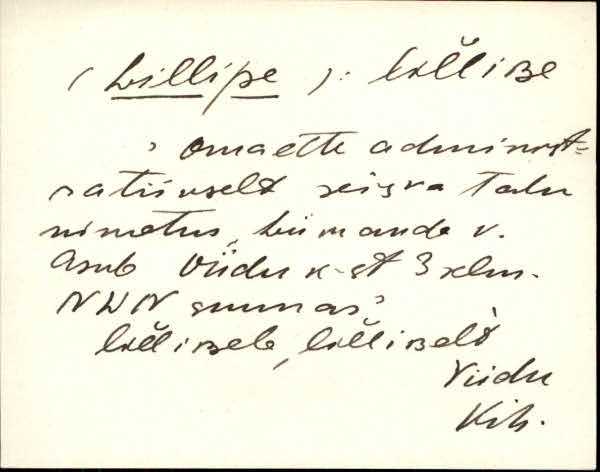 (Lillipe): lil̆l̆iʙe
' omaette administ-
ratiivselt seisva talu
nimetus, Liimanda v.
Asub Viidu k-st 3 klm.
NWN suunas'
lil̆l̆iʙele, lil̆l̆iʙelt
Viidu
Kih.